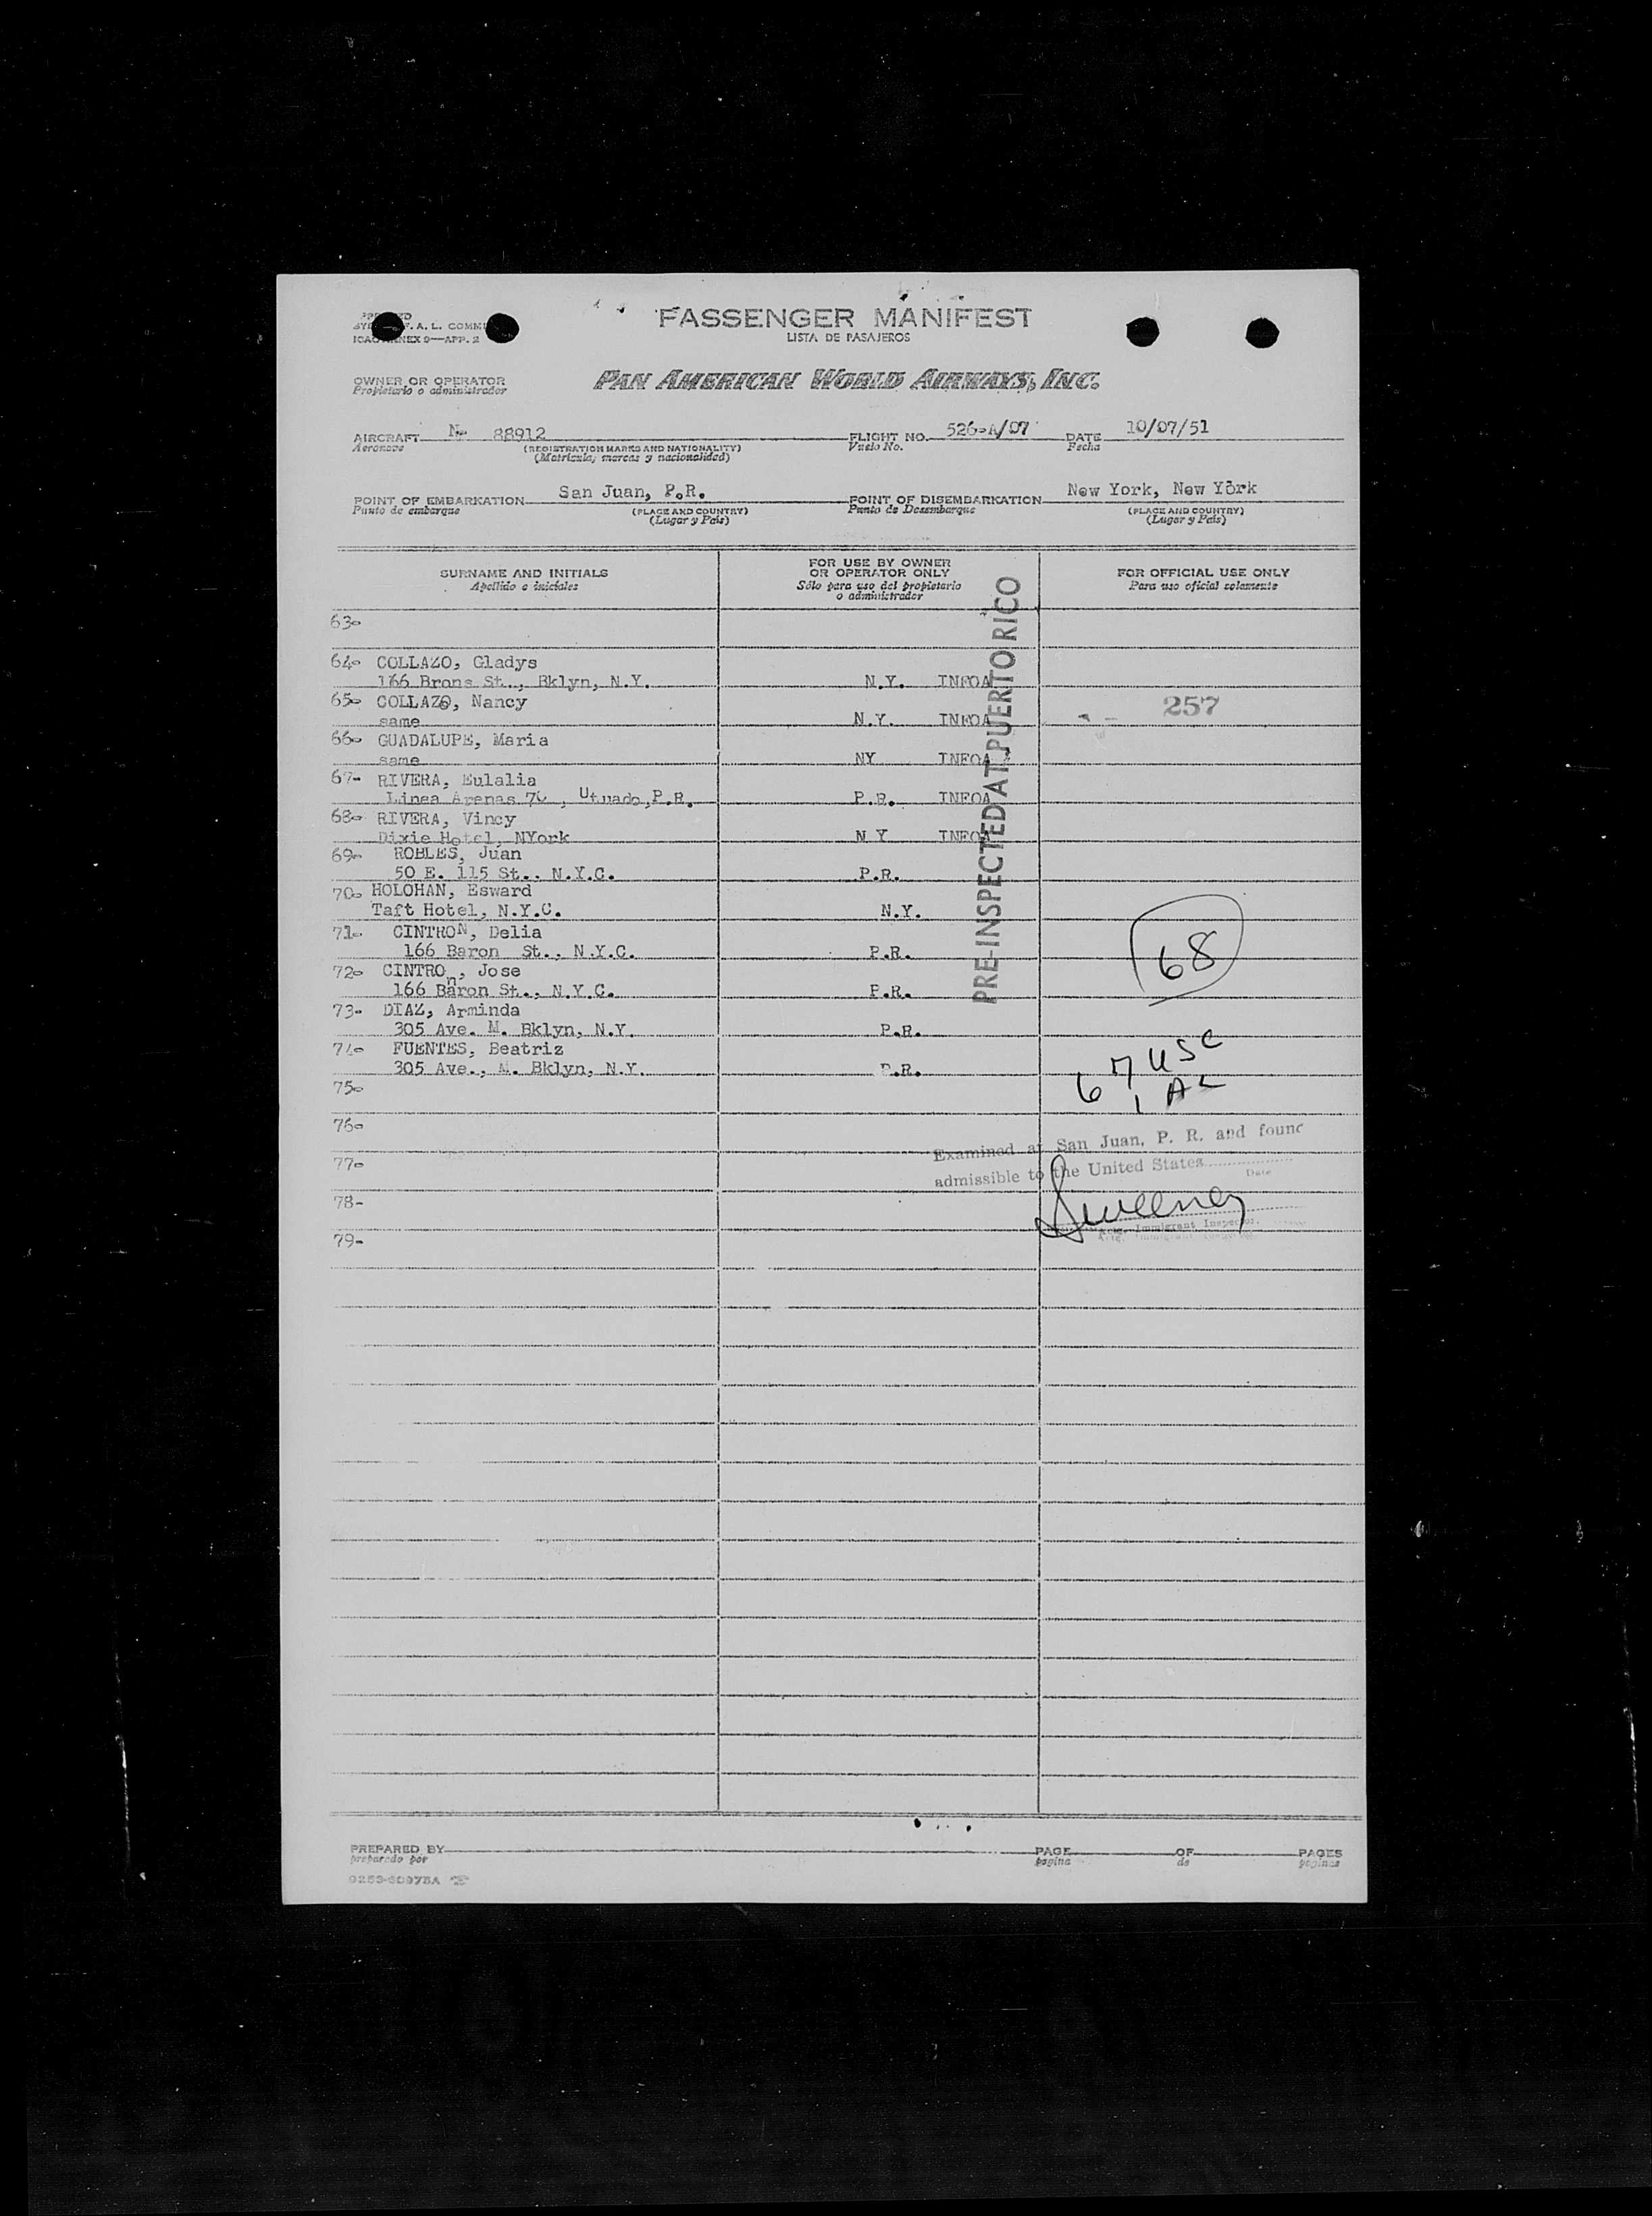 PASSENGER MANIFEST
LISTA DE PASAJEROS
F. A. L. COMM
ICAO ANNEX 9—APP. 2
OWNER OR OPERATOR
Propietario o administrador
PAN AMERICAN WORLD AIRWAYS, INC.
AIRCRAFT N- 88912 FLIGHT NO. 526-A/07 DATE 10/07/51
Aeronave (REGISTRATION MARKS AND NATIONALITY) Vuelo No. Fecha
(Matrícula, marcas y nacionalidad)
POINT OF EMBARKATION San Juan, P.R. POINT OF DISEMBARKATION New York, New York
Punto de embarque (PLACE AND COUNTRY) Punto de Desembarque (PLACE AND COUNTRY)
(Lugar y País) (Lugar y País)
SURNAME AND INITIALS FOR USE BY OWNER OR OPERATOR ONLY FOR OFFICIAL USE ONLY
Apellido e iniciales Sólo para uso del propietario o administrador Para uso oficial solamente
PRE-INSPECTED AT PUERTO RICO
63-
64- COLLAZO, Gladys
166 Brons St., Bklyn, N.Y. N.Y. INFOA
65- COLLAZO, Nancy 257
same N.Y. INFOA
66- GUADALUPE, Maria
same NY INFOA
67- RIVERA, Eulalia
Linea Arenas 76, Utuado,P.R. P.R. INFOA
68- RIVERA, Vincy
Dixie Hotel, NYork N Y INFOA
69- ROBLES, Juan
50 E. 115 St., N.Y.C. P.R.
70- HOLOHAN, Esward
Taft Hotel, N.Y.C. N.Y.
71- CINTRON, Delia
166 Baron St., N.Y.C. P.R. 68
72- CINTROn, Jose
166 Baron St., N.Y.C. P.R.
73- DIAZ, Arminda
305 Ave. M. Bklyn, N.Y. P.R.
74- FUENTES, Beatriz
305 Ave., M. Bklyn, N.Y. P.R. 67 USC
75- 1 AL
76-
Examined at San Juan, P. R. and found
77-
admissible to the United States
Date
78-
Sweeney
Actg. Immigrant Inspector.
79-
PREPARED BY PAGE OF PAGES
preparado por página de páginas